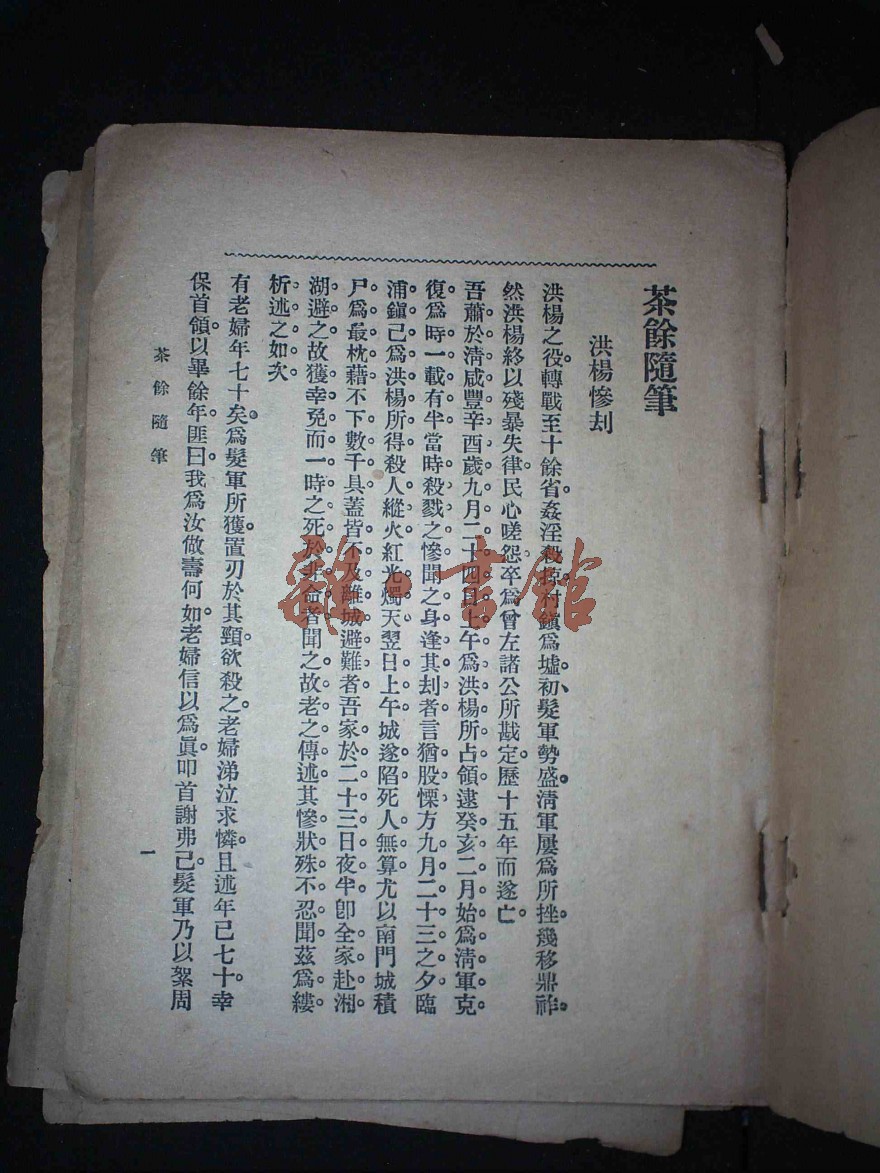 茶餘隨筆
洪楊慘刦
洪楊之役。轉戰至十餘省。姦淫殺掠。村鎭爲墟。初髮軍勢盛。淸軍屢爲所挫。幾移鼎祚。
然洪楊終以殘暴失律。民心嗟怨。卒爲曾左諸公所戡定。歷十五年而遂亡。
吾蕭於清咸豐辛酉歲九月二十四日上午。爲洪楊所占領。逮癸亥二月。始爲淸軍克
復。爲時一載有半。當時殺戮之慘。聞之身逢其刦者言。猶股慄。方九月二十三之夕。臨
浦鎭已爲洪楊所得。殺人縱火。紅光燭天。翌日上午。城遂陷。死人無算。尤以南門城積
尸爲最。枕藉不下數千具。蓋皆不及離城避難者。吾家於二十三日夜半。卽全家赴湘
湖避之。故獲幸免。而一時之死於非命者。聞之故老之傳述。其慘狀殊不忍聞。茲爲縷
析述之如次
有老婦年七十矣。爲髮軍所獲。置刃於其頸。欲殺之。老婦涕泣求憐。且述年已七十。幸
保首領。以畢餘年。匪曰。我爲汝做壽何如。老婦信以爲眞。叩首謝弗已。髮軍乃以絮周
茶餘隨筆
一
書館